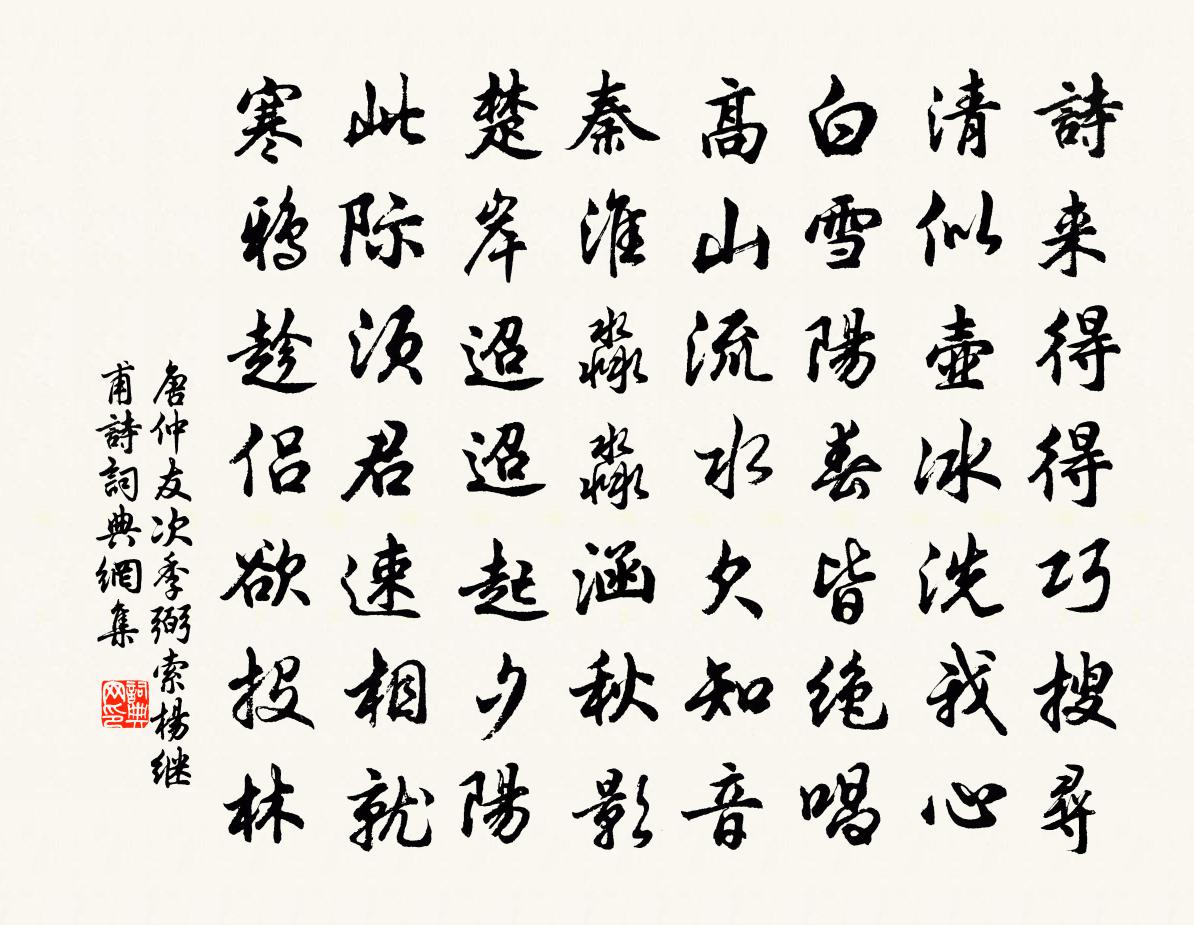 詩来得得巧搜尋
清似壺冰洗我心
白雪陽春皆絶唱
高山流水久知音
秦淮淼淼涵秋影
楚岸迢迢起夕陽
此际须君速相就
寒鴉趁侣欲投林
唐仲友次季弼索楊继
甫詩詞典網集
詞典
网印